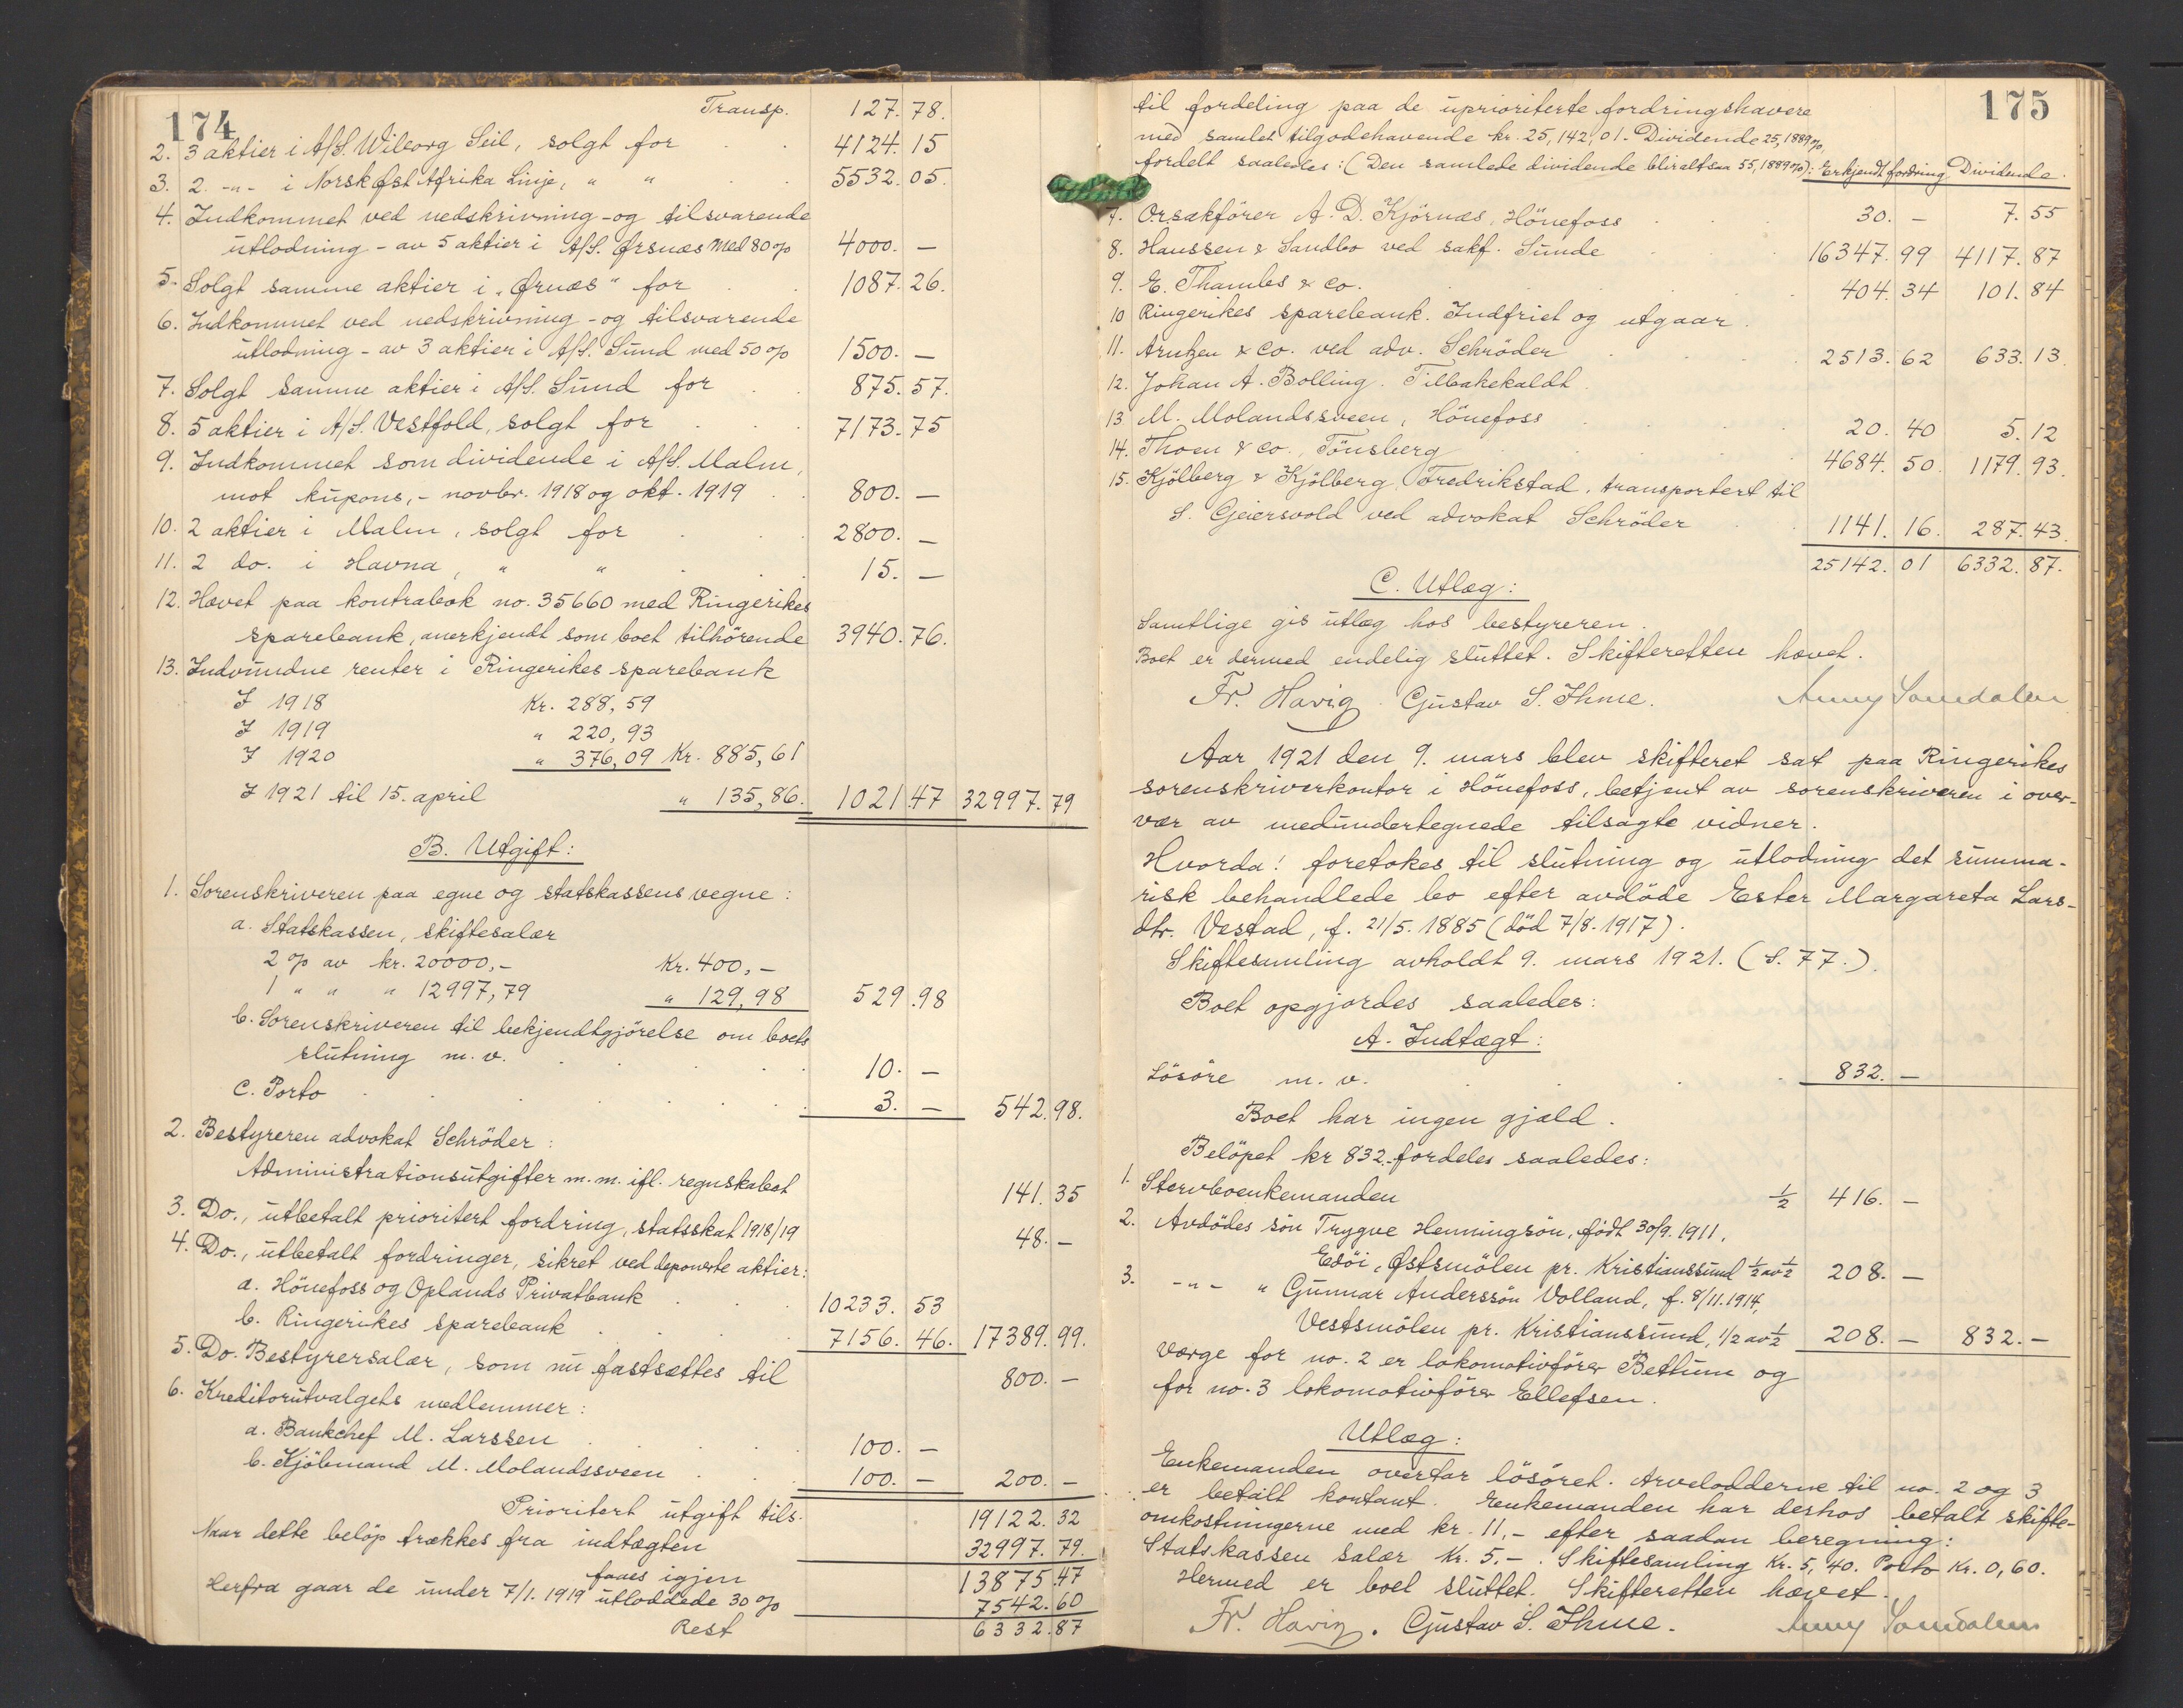 174
Transp. 127. 78.
2. 3 aktier i A/S. Wiborg Seil, solgt for 4124. 15
3. 2 -"- i Norsk Øst Afrika Linje, " " 5532. 05.
4. Indkommet ved nedskrivning - og tilsvarende
utlodning - av 5 aktier i A/S. Ørsnæs med 80 % 4000. —
5. Solgt samme aktier i „Ørnæs" for 1087. 26.
6. Indkommet ved nedskrivning - og tilsvarende
utlodning - av 3 aktier i A/S. Sund med 50 % 1500. —
7. Solgt samme aktier i A/S. Sund for 875. 57.
8. 5 aktier i A/S. Vestfold, solgt for 7173. 75
9. Indkommet som dividende i A/S. Malm,
mot kupons, - novbr. 1918 og okt. 1919 800. —
10. 2 aktier i Malm, solgt for 2800. —
11. 2 do. i Havna, " " 15. —
12. Hævet paa kontrabok no. 35660 med Ringerikes
sparebank, anerkjendt som boet tilhörende 3940. 76.
13. Indvundne renter i Ringerikes sparebank
I 1918 Kr. 288,59
I 1919 " 220,93
I 1920 " 376,09 Kr. 885,61
I 1921 til 15. april " 135,86. 1021. 47 32997. 79
B. Utgift:
1. Sorenskriveren paa egne og statskassens vegne:
a. Statskassen, skiftesalær
2 % av kr. 20000,- Kr. 400,-
1 " " " 12997,79 " 129,98 529. 98
b. Sorenskriveren til bekjendtgjörelse om boets
slutning m. v. 10. —
c. Porto 3. — 542. 98.
2. Bestyreren advokat Schröder:
Administrationsutgifter m. m. ifl. regnskabet 141. 35
3. Do., utbetalt prioritert fordring, statsskat 1918/19 48. —
4. Do., utbetalt fordringer, sikret ved deponerte aktier:
a. Hönefoss og Oplands Privatbank 10233. 53
b. Ringerikes sparebank 7156. 46. 17389. 99.
5. Do. Bestyrersalær, som nu fastsættes til 800. —
6. Kreditorutvalgets medlemmer:
a. Bankchef M. Larssen 100. —
b. Kjöbmand M. Molandssveen 100. — 200. —
Prioritert utgift tils. 19122. 32
Naar dette belöp trækkes fra indtægten 32997. 79.
faaes igjen 13875. 47
Herfra gaar de under 7/1. 1919 utloddede 30 % 7542. 60
Rest 6332. 87
175
til fordeling paa de uprioriterte fordringshavere
med samlet tilgodehavende kr. 25,142,01. Dividende 25,1889 %,
fordelt saaledes: (Den samlede dividende blir altsaa 55,1889 %): Erkjendt fordring Dividende.
7. Orsakförer A. D. Kjörnæs, Hönefoss 30. — 7. 55
8. Hanssen & Sandbo ved sakf. Sunde 16347. 99 4117. 87
9. E. Thambs & Co. 404. 34 101. 84
10 Ringerikes sparebank. Indfriet og utgaar.
11. Arntzen & Co. ved adv. Schröder 2513. 62 633. 13.
12. Johan A. Bolling. Tilbakekaldt
13 M. Molandssveen, Hönefoss 20. 40 5. 12
14. Thoen & Co., Tönsberg 4684. 50. 1179. 93.
15. Kjölberg & Kjölberg Fredrikstad, transportert til
S. Geiersvold ved advokat Schröder 1141. 16. 287. 43.
25142. 01 6332. 87.
C. Utlæg:
Samtlige gis utlæg hos bestyreren.
Boet er dermed endelig sluttet. Skifteretten hævet.
Fr. Havig. Gustav S. Ihme. Anny Samdalen
Aar 1921 den 9. mars blev skifteret sat paa Ringerikes
sorenskriverkontor i Hönefoss, betjent av sorenskriveren i over-
vær av medundertegnede tilsagte vidner.
Hvorda! foretokes til slutning og utlodning det summa-
risk behandlede bo efter avdöde Ester Margareta Lars-
dtr. Vestad, f. 21/5. 1885 (död 7/8. 1917).
Skiftesamling avholdt 9. mars 1921. (S. 77.).
Boet opgjordes saaledes:
A. Indtægt:
Lösöre m. v. 832. —
Boet har ingen gjæld.
Belöpet kr 832.- fordeles saaledes:
1. Stervboenkemanden 1/2 416. —
2. Avdödes sön Trygve Henningsön, födt 30/9. 1911,
Edöi, Østsmölen pr. Kristianssund 1/2 av 1/2 208. —
3. -"- " Gunnar Anderssön Volland, f. 8/11. 1914,
Vestsmölen pr. Kristianssund, 1/2 av 1/2 208. — 832. —
Værge for no. 2 er lokomotivförer Bettum og
for no. 3 lokomotivförer Ellefsen.
Utlæg:
Enkemanden overtar lösöret. Arvelodderne til no. 2 og 3
er betalt kontant. Enkemanden har derhos betalt skifte-
omkostningerne med kr. 11,- efter saadan beregning:
Statskassen salær Kr. 5,-. Skiftesamling Kr. 5,40. Porto Kr. 0,60.
Hermed er boet sluttet. Skifteretten hævet.
Fr. Havig. Gustav S. Ihme. Anny Samdalen